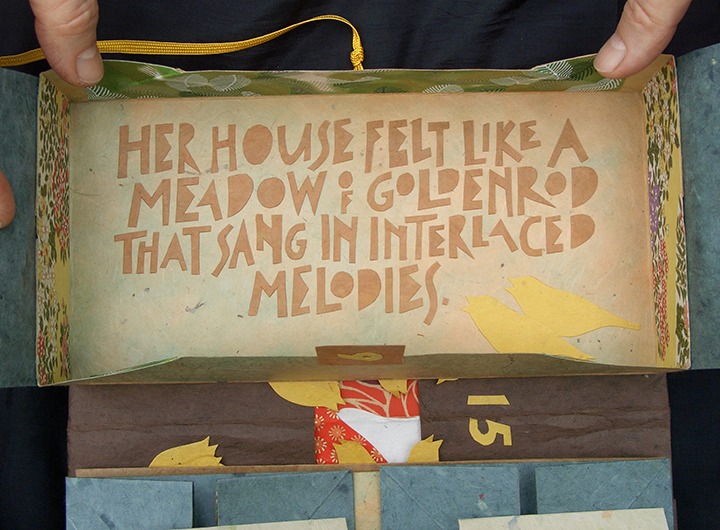 HER HOUSE FELT LIKE A
MEADOW OF GOLDENROD
THAT SANG IN INTERLACED
MELODIES.
15